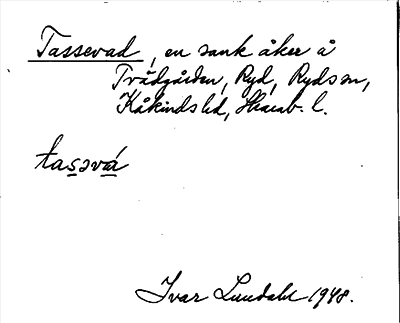 Tassevad, en sank åker å
Trädgården, Ryd, Ryds sn,
Kåkinds hd, Skarab. l.
tasəvá
Ivar Lundahl 1948.